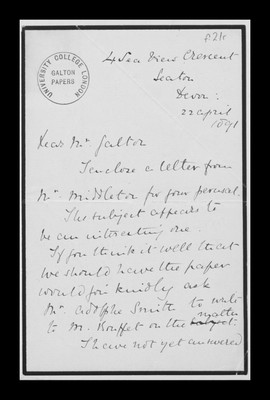 f21r
UNIVERSITY COLLEGE LONDON
GALTON
PAPERS
4 Sea View Crescent
Seaton
Devon:
22 April
1891
Dear Mr Galton
I enclose a letter from
Mr Middleton for your perusal.
The subject appears to
be an interesting one.
If you think it well that
we should have the paper
would you kindly ask
Mr. Adolphe Smith to write
to M. Bouffet on the subject. matter
I have not yet answered